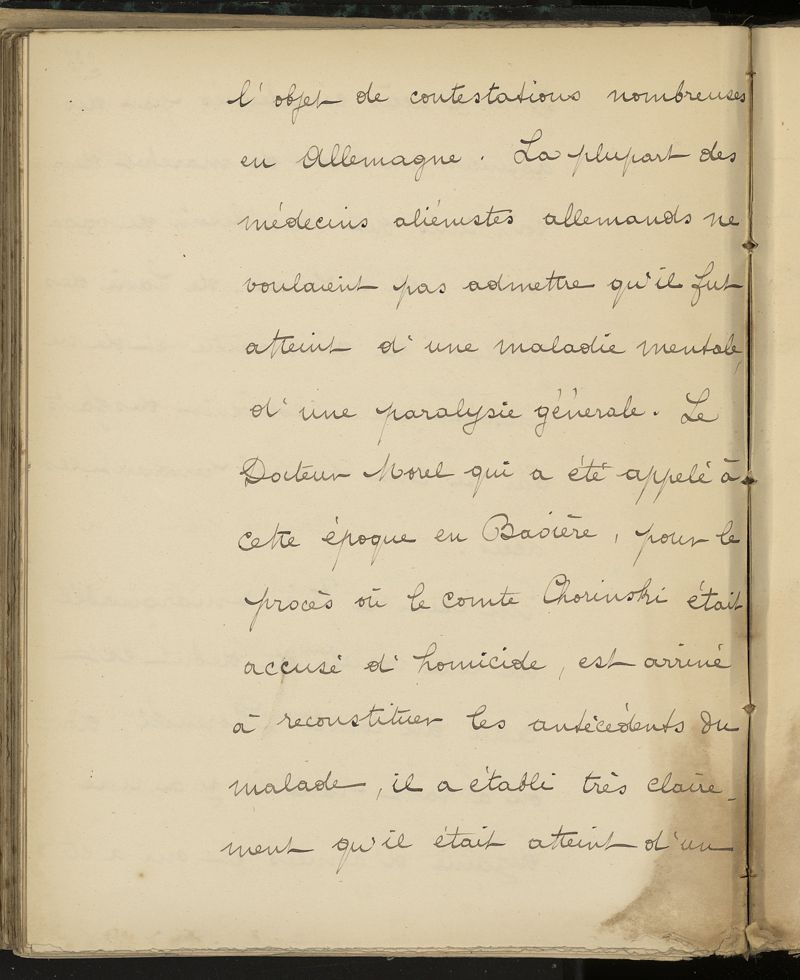 l' objet de contestations nombreuses
en Allemagne. La plupart des
médecins aliénistes allemands ne
voulaient pas admettre qu'il fut
atteint d' une maladie mentale,
d' une paralysie générale. Le
Docteur Morel qui a été appelé à
cette époque en Bavière, pour le
procès où le comte Chorinski était
accusé d' homicide, est arrivé
à reconstituer les antécédents du
malade, il a établi très claire-
ment qu'il était atteint d'un